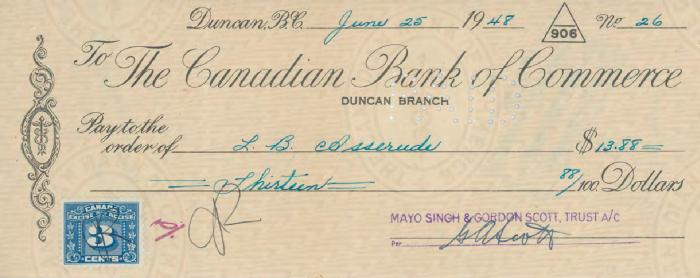 Duncan, B.C. June 25 1948 906 No 26
To The Canadian Bank of Commerce
DUNCAN BRANCH
Pay to the
order of L. B. Osserude $13.88
Thirteen 88/100 Dollars
CANADA
EXCISE EXCISE
3
CENTS
MAYO SINGH & GORDON SCOTT, TRUST A/C
Per G A Scott